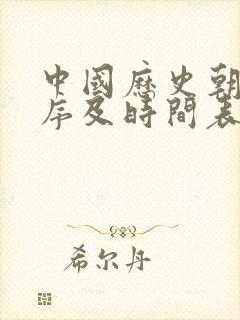 中國歷史朝
序及時間表
希尔丹